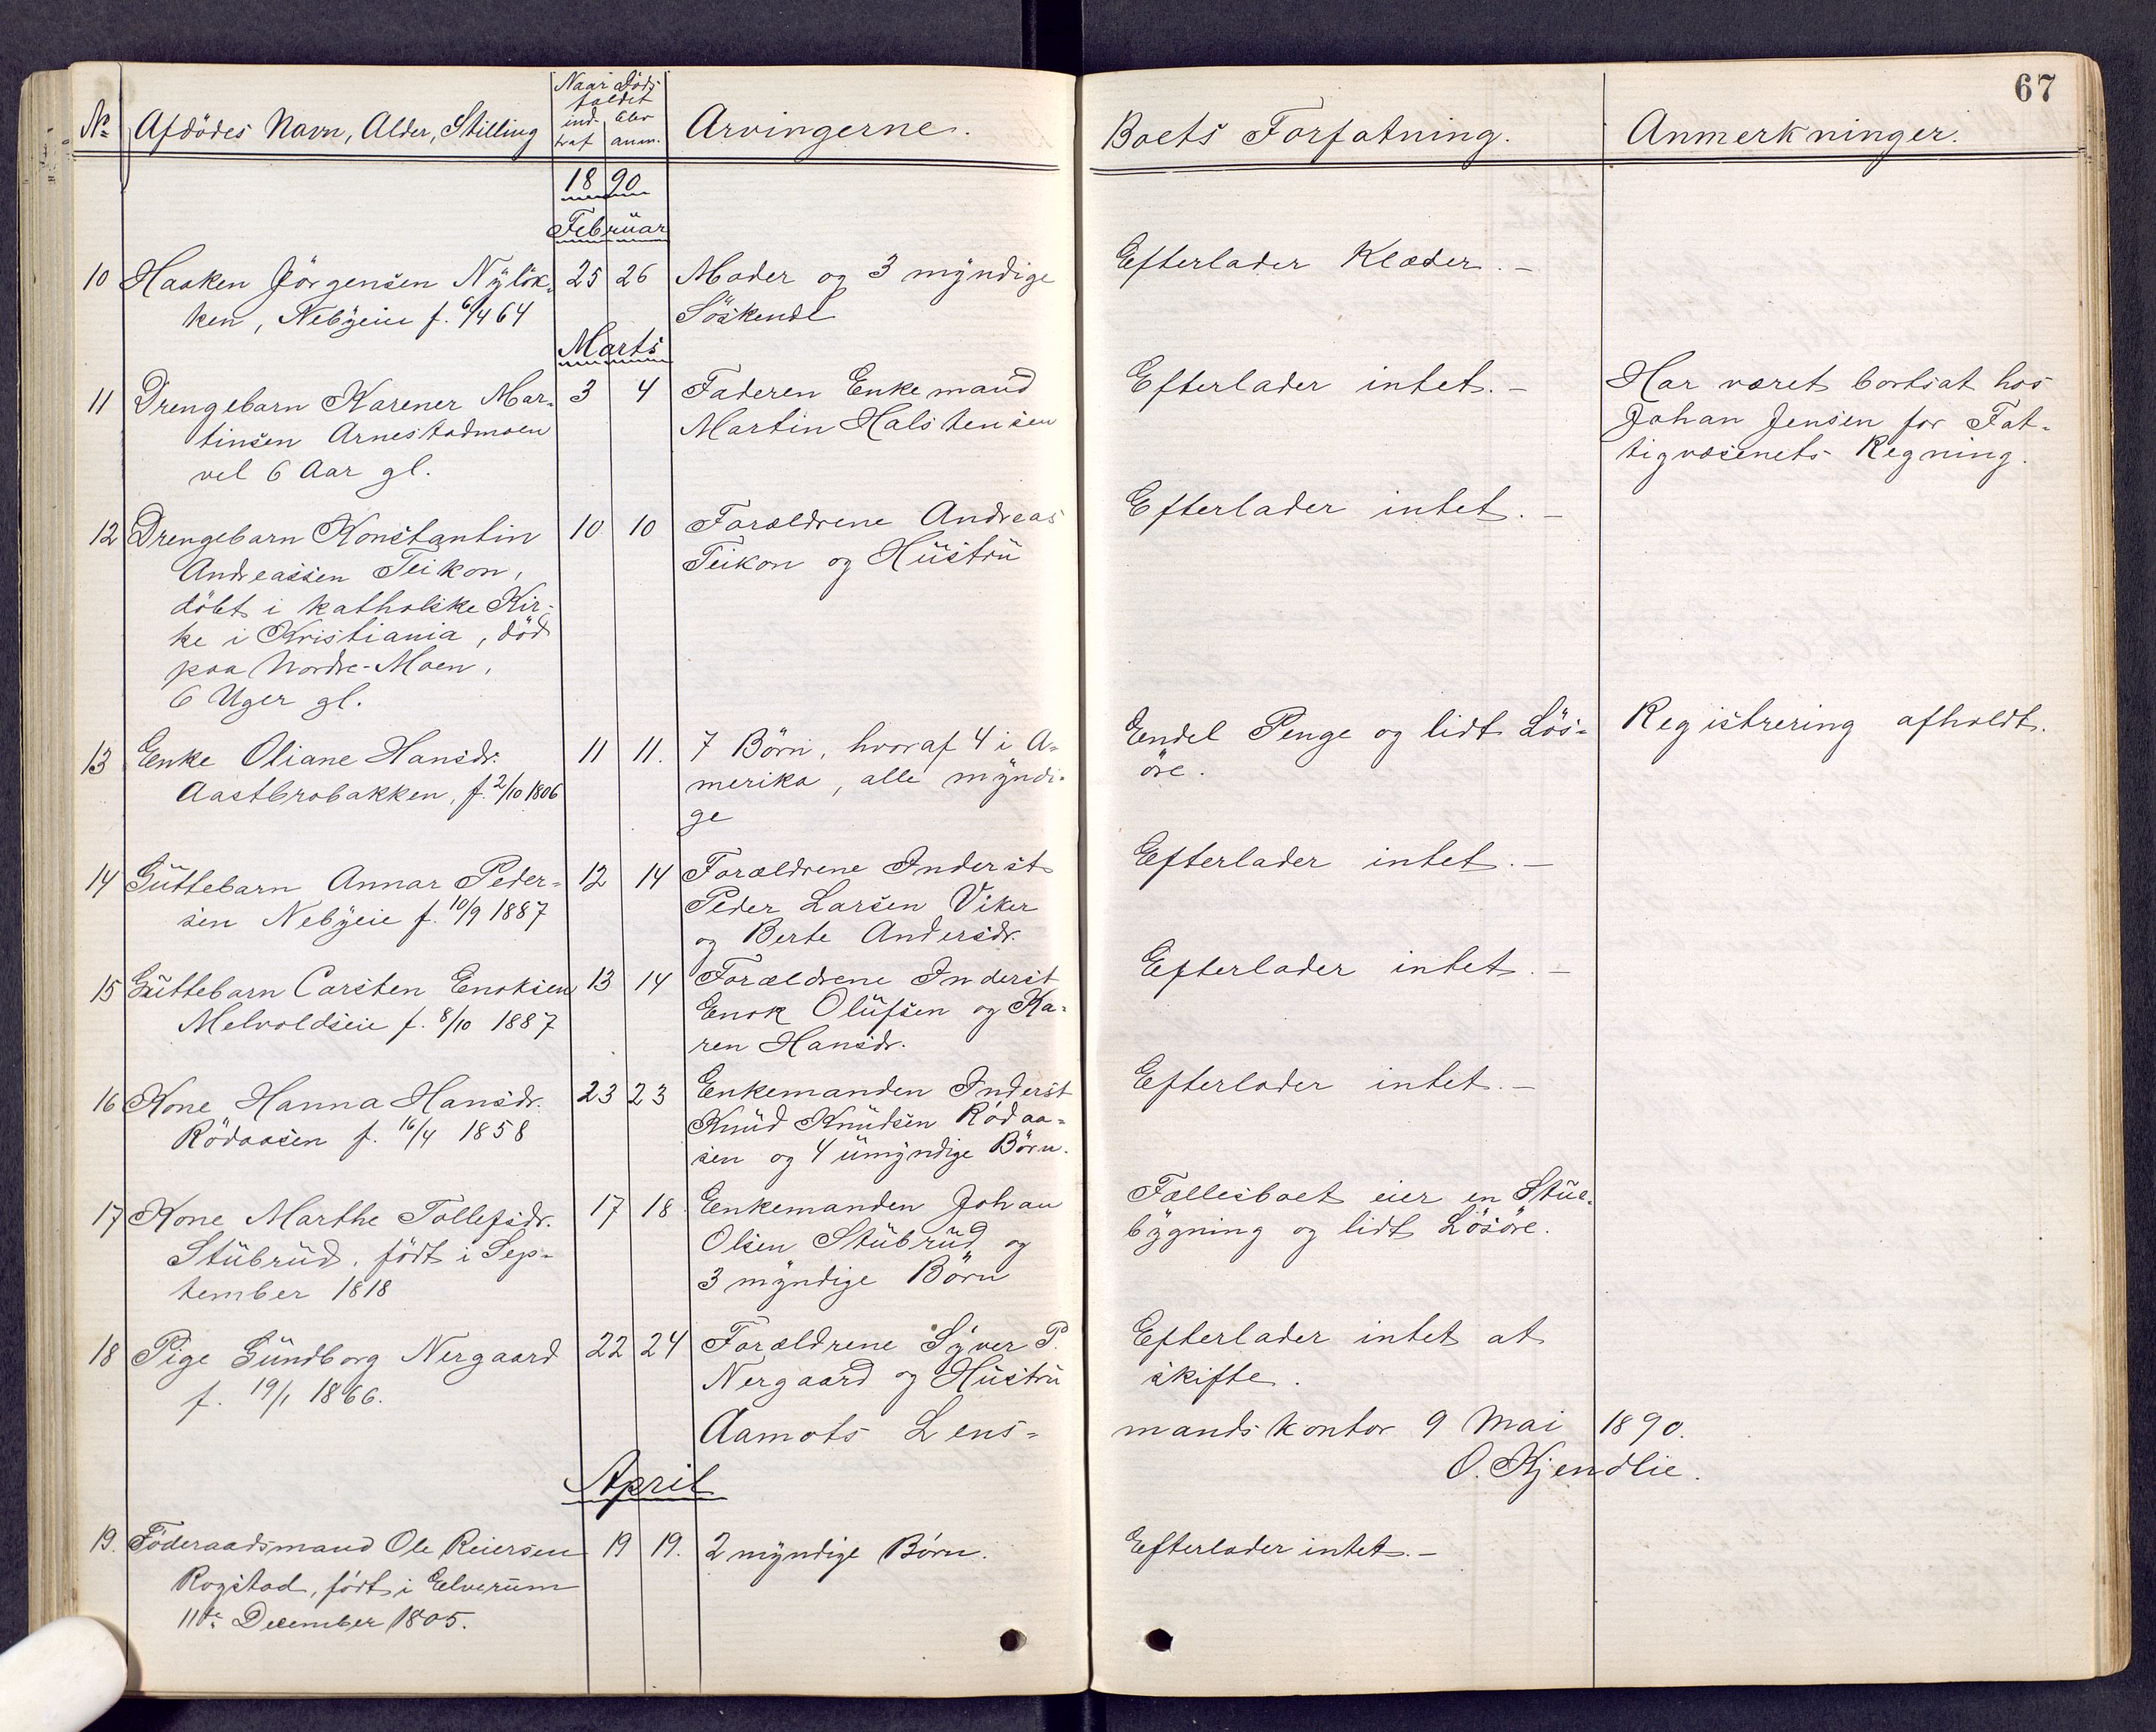 67
No Afdödes Navn, Alder, Stilling
Naar Döds
faldet
ind- blev
traf anm.
Arvingerne.
Boets Forfatning.
Anmerkninger.
1890
Februar
10 Haaken Jörgensen Nylök- 25 26 Moder og 3 myndige Efterlader Klæder. –
ken, Nebyeie f. 6/4 64 Söskende
Marts
11 Drengebarn Karener Mar- 3 4 Faderen Enkemand Efterlader intet. – Har været bortsat hos
tinsen Arnestadmoen Martin Halstensen Johan Jensen for Fat-
vel 6 Aar gl. tigvæsenets Regning.
12 Drengebarn Konstantin 10 10 Forældrene Andreas Efterlader intet. –
Andreassen Teikon, Teikon og Hustru
döbt i katholske Kir-
ke i Kristiania, död
paa Nordre-Moen,
6 Uger gl.
13 Enke Oliane Hansdr. 11 11. 7 Börn, hvoraf 4 i A- Endel Penge og lidt Lös- Registrering afholdt.
Aastbrobakken, f. 2/10 1806 merika, alle myndi- öre.
ge
14 Guttebarn Annar Peder- 12 14 Forældrene Inderst Efterlader intet. –
sen Nebyeie f. 10/9 1887 Peder Larsen Viker
og Berte Andersdr.
15 Guttebarn Carsten Enoksen 13 14 Forældrene Inderst Efterlader intet. –
Melvoldseie f. 8/10 1887 Enok Olufsen og Ka-
ren Hansdr.
16 Kone Hanna Hansdr. 23 23 Enkemanden Inderst Efterlader intet. –
Rödaasen f. 16/4 1858 Knud Knudsen Rödaa-
sen og 4 umyndige Börn.
17 Kone Marthe Tollefsdr. 17 18 Enkemanden Johan Fællesboet eier en Stue-
Stubrud, födt i Sep- Olsen Stubrud og bygning og lidt Lösöre.
tember 1818 3 myndige Börn
18 Pige Gundborg Nergaard 22 24 Forældrene Syver P. Efterlader intet at
f. 19/1 1866. Nergaard og Hustru skifte.
Aamots Lens- mandskontor 9 Mai 1890.
O. Kjendlie.
April
19. Föderaadsmand Ole Reiersen 19 19. 2 myndige Börn. Efterlader intet. –
Rogstad, födt i Elverum
11te December 1805.